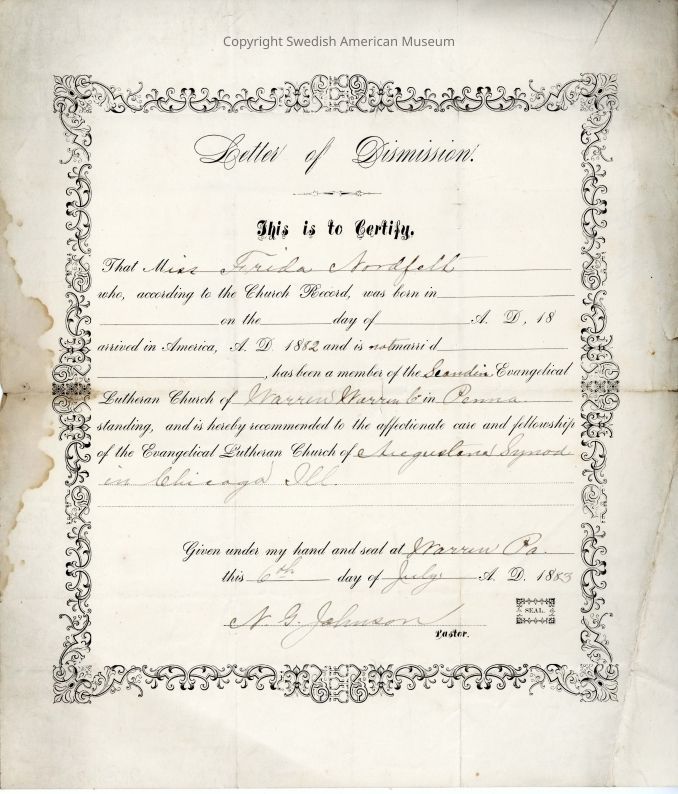 Copyright Swedish American Museum
Letter of Dismission.
This is to Certify.
That Miss Frida Nordfelt
who, according to the Church Record, was born in
on the day of A. D, 18
arrived in America, A. D. 1882 and is not marri d
, has been a member of the Scandin. Evangelical
Lutheran Church of Warren Warren in Penna
standing, and is hereby recommended to the affectionate care and fellowship
of the Evangelical Lutheran Church of Augustana Synod
in Chicago Ill.
Given under my hand and seal at Warren Pa.
this 6th day of July A. D. 1883
N. G. Johnson
SEAL.
Pastor.